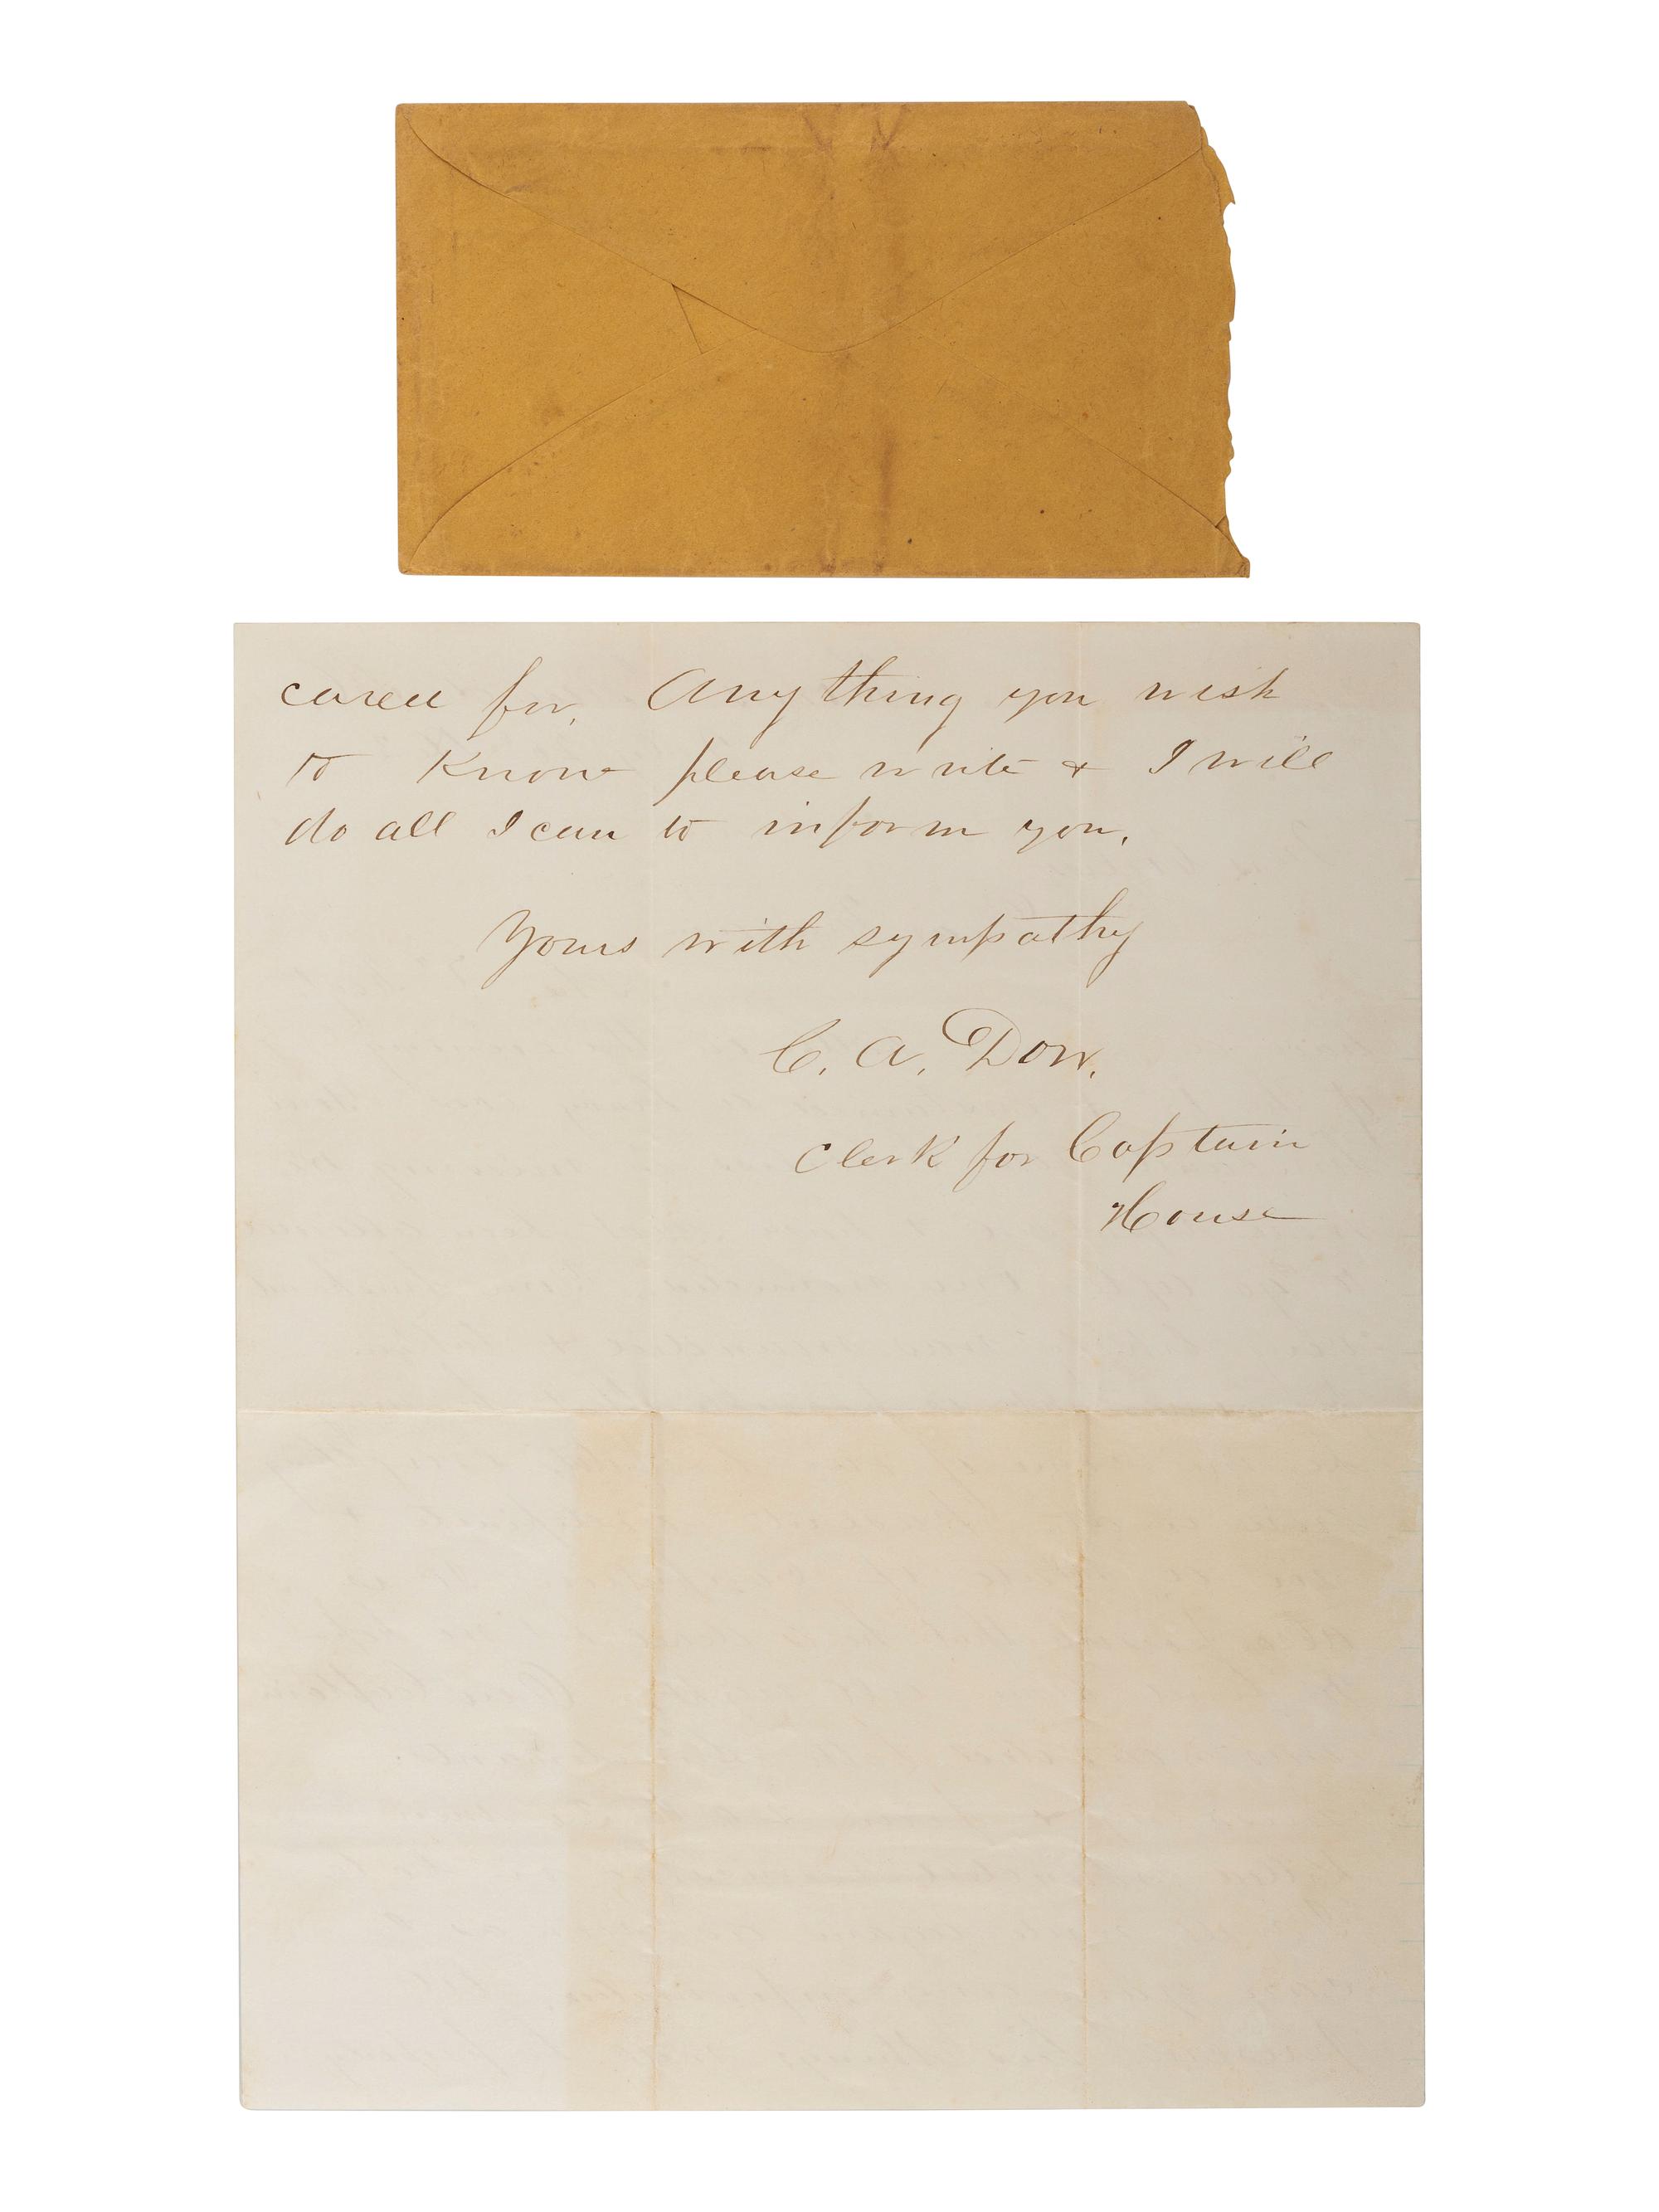 cared for. Anything you wish
to Know please write & I will
do all I can to inform you.
Yours with sympathy
C. A. Dow.
Clerk for Captain
House